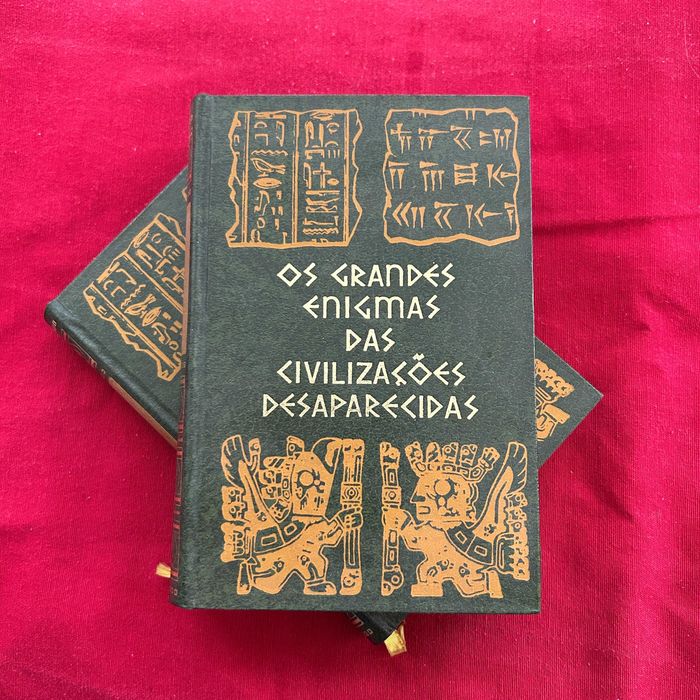 OS GRANDES
ENIGMAS
DAS
CIVILIZAÇÕES
DESAPARECIDAS